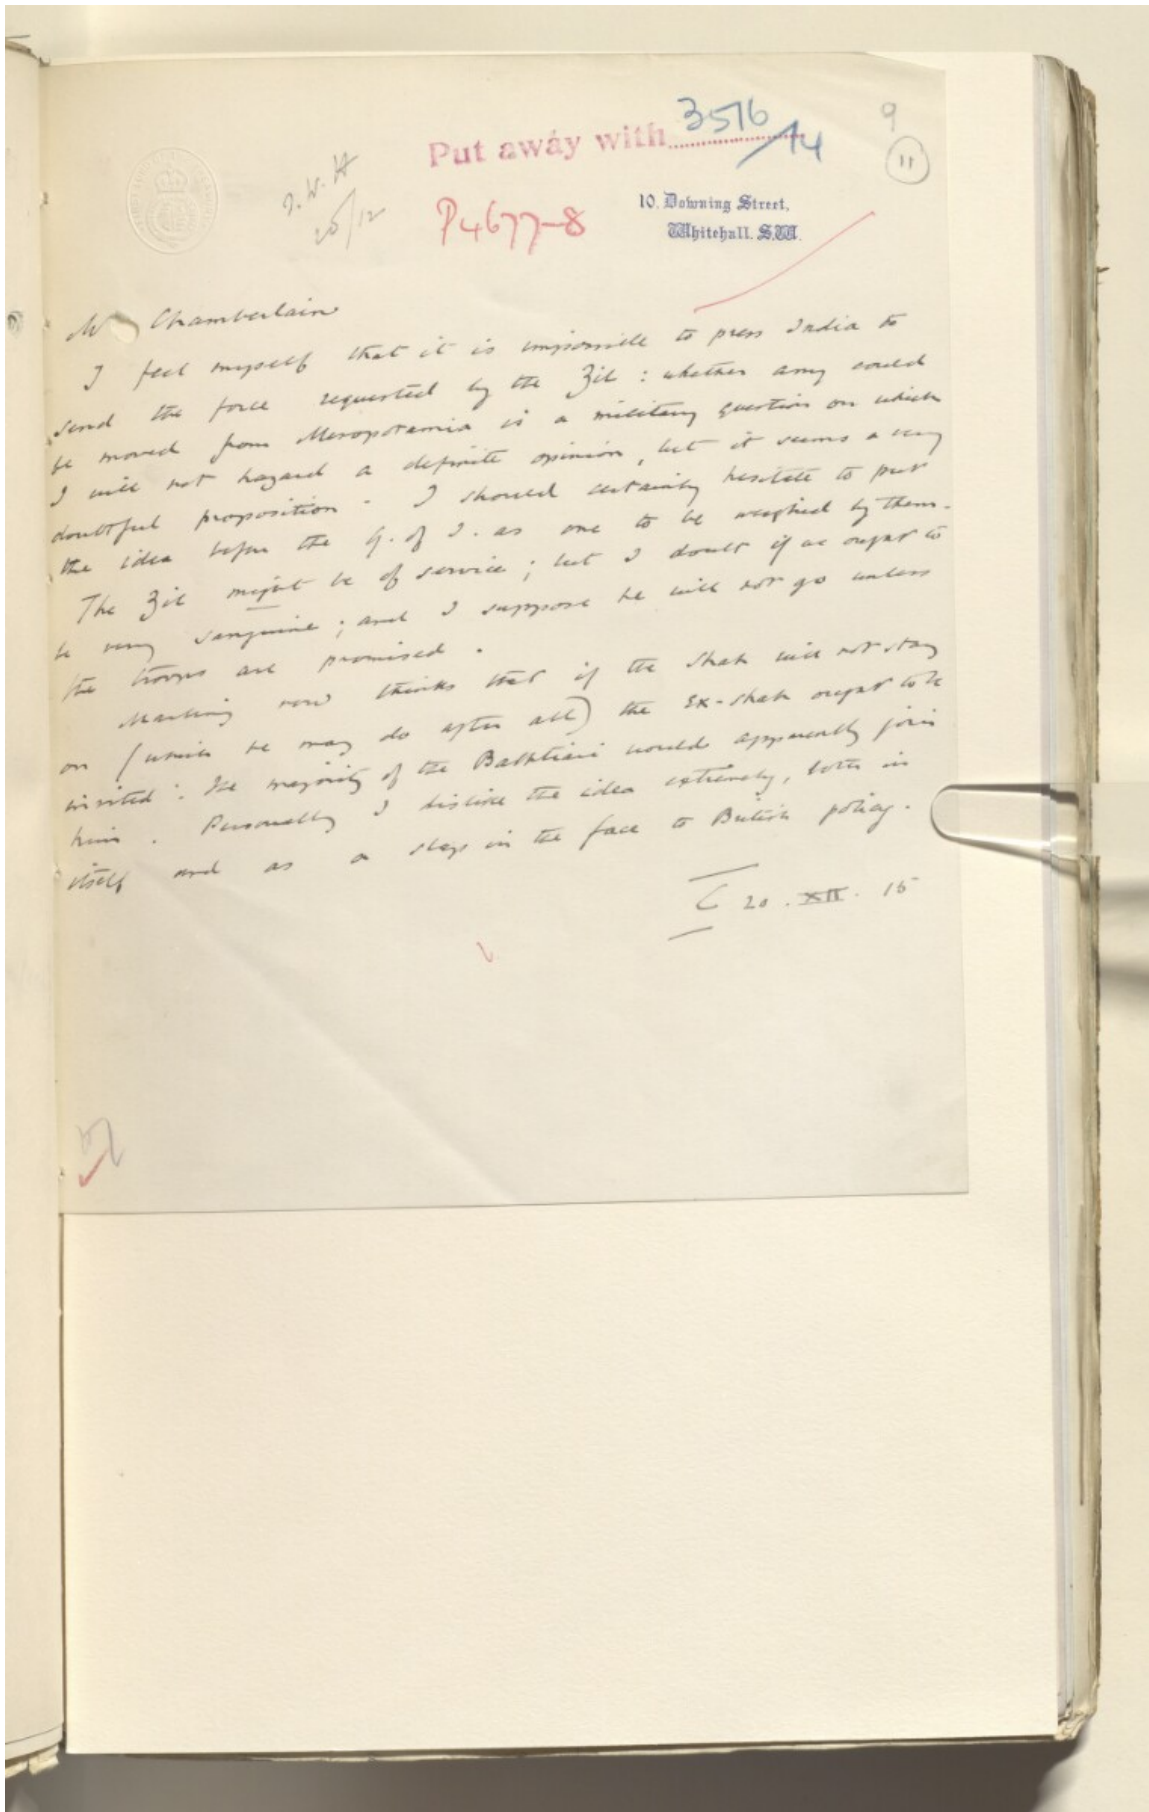 Put away with 3516/14
9
11
J.W.H
20/12
P4677-8
10, Downing Street,
Whitehall. S.W.
Mr Chamberlain
I feel myself that it is impossible to press India to
send the force requested by the Zil : whether any could
be moved from Mesopotamia is a military question on which
I will not hazard a definite opinion, but it seems a very
doubtful proposition. I should certainly hesitate to put
the idea before the G. of I. as one to be weighed by them.
The Zil might be of service ; but I doubt if we ought to
be very sanguine ; and I suppose he will not go unless
the troops are promised.
Marling now thinks that if the Shah will not stay
on (which he may do after all) the ex-Shah ought to be
invited : the majority of the Bakhtiari would apparently join
him. Personally I dislike the idea extremely, both in
itself and as a slap in the face to British policy.
C 20. XII. 15